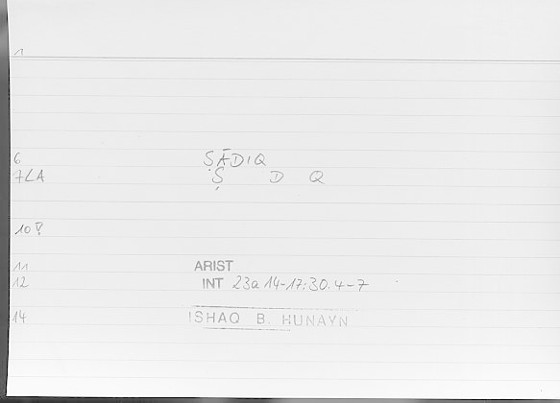 1
6 ṢĀDIQ
7LA Ṣ D Q
10
11 ARIST
12 INT 23a14-17:30.4-7
14 ISHAQ B. HUNAYN